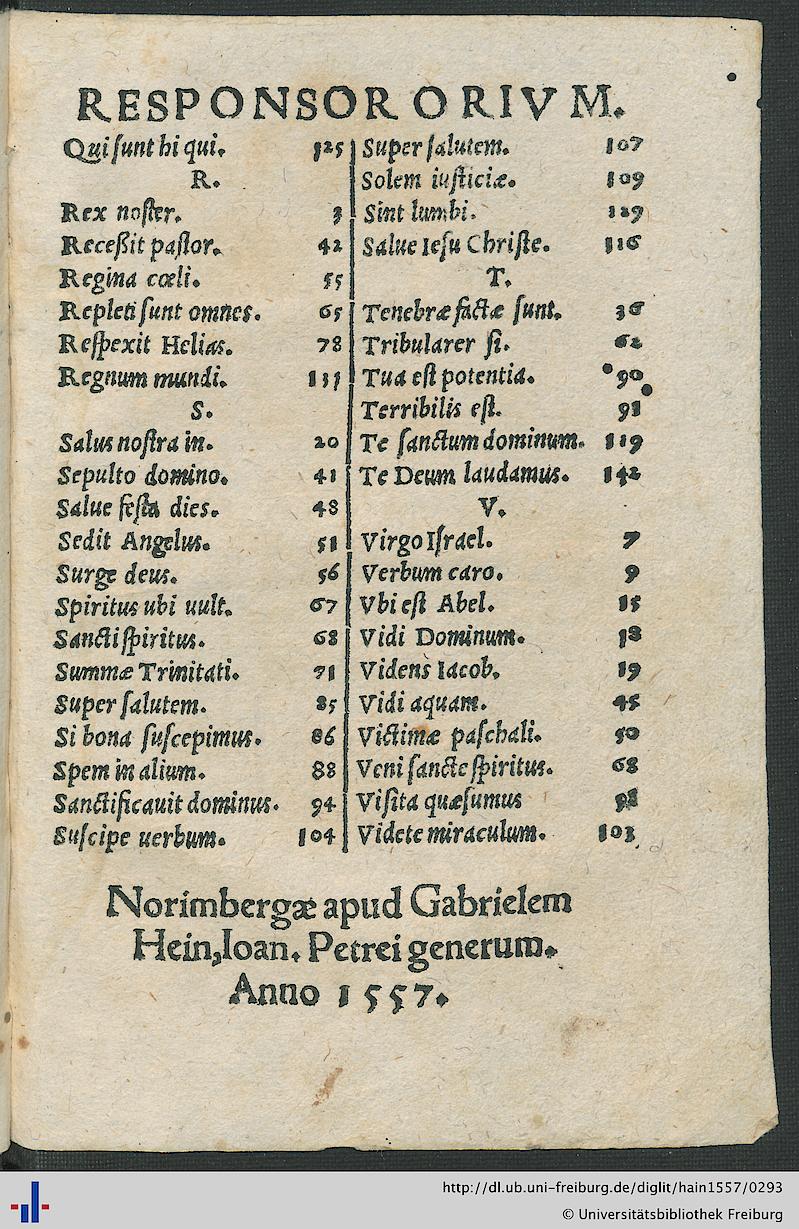 RESPONSOR ORIVM.
Qui sunt hi qui. 125
R.
Rex noster. 3
Receßit pastor. 42
Regina cœli. 55
Repleti sunt omnes. 65
Respexit Helias. 78
Regnum mundi. 133
S.
Salus nostra in. 20
Sepulto domino. 41
Salue festa dies. 48
Sedit Angelus. 51
Surge deus. 56
Spiritus ubi uult. 67
Sancti spiritus. 68
Summæ Trinitati. 71
Super salutem. 85
Si bona suscepimus. 86
Spem in alium. 88
Sanctificauit dominus. 94
Suscipe uerbum. 104
Super salutem. 107
Solem iusticiæ. 109
Sint lumbi. 129
Salue Iesu Christe. 116
T.
Tenebræ factæ sunt. 36
Tribularer si. 62
Tua est potentia. 90
Terribilis est. 91
Te sanctum dominum. 119
Te Deum laudamus. 142
V.
Virgo Israel. 7
Verbum caro. 9
Vbi est Abel. 15
Vidi Dominum. 18
Videns Iacob. 19
Vidi aquam. 45
Victimæ paschali. 50
Veni sancte spiritus. 68
Visita quæsumus 98
Videte miraculum. 103
Norimbergæ apud Gabrielem
Hein, Ioan. Petrei generum.
Anno 1557.
http://dl.ub.uni-freiburg.de/diglit/hain1557/0293
© Universitätsbibliothek Freiburg